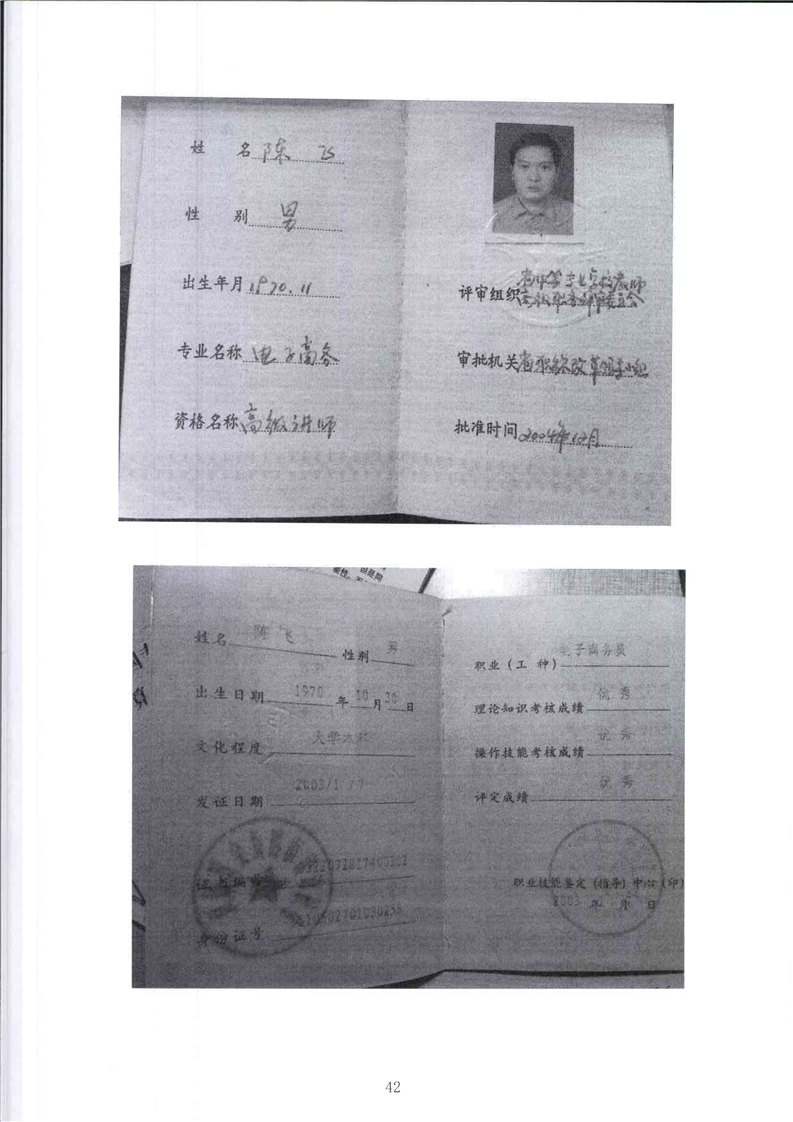 姓 名 陈 飞
性 别 男
出生年月 1970.11
专业名称 电子商务
资格名称 高级讲师
评审组织 省中等专业学校教师
高级职务评审委员会
审批机关 省职称改革领导小组
批准时间 2004年12月
姓名 陈飞 性别 男
出生日期 1970 年 10 月 30 日
文化程度 大学本科
发证日期 2003/1 /7
证书编号
身份证号
职业(工 种) 电子商务员
理论知识考核成绩 优秀
操作技能考核成绩 优秀
评定成绩 优秀
职业技能鉴定(指导)中心(印)
2003 年 月 日
42